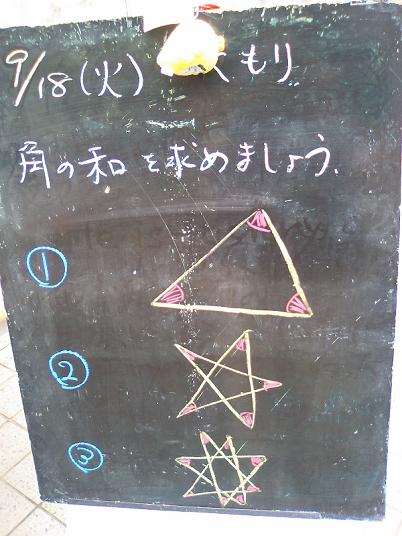 9/18(火) くもり
角の和を求めましょう.
①
②
③